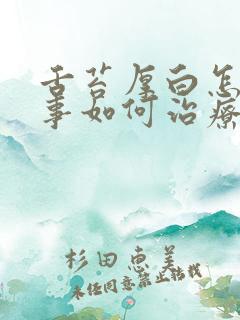 舌苔厚白怎
事如何治療
杉田恵美
未经同意禁止转载